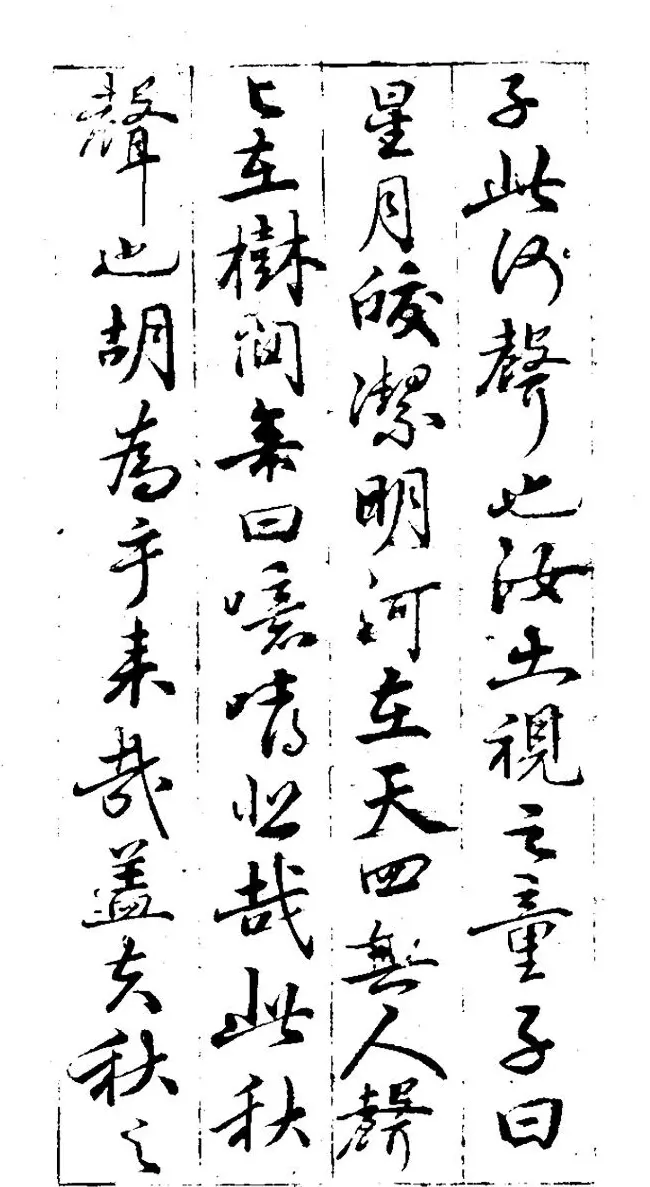 子此何聲也汝出視之童子曰
星月皎潔明河在天四無人聲
々在樹間余曰噫嘻悲哉此秋
聲也胡為乎来哉盖夫秋之